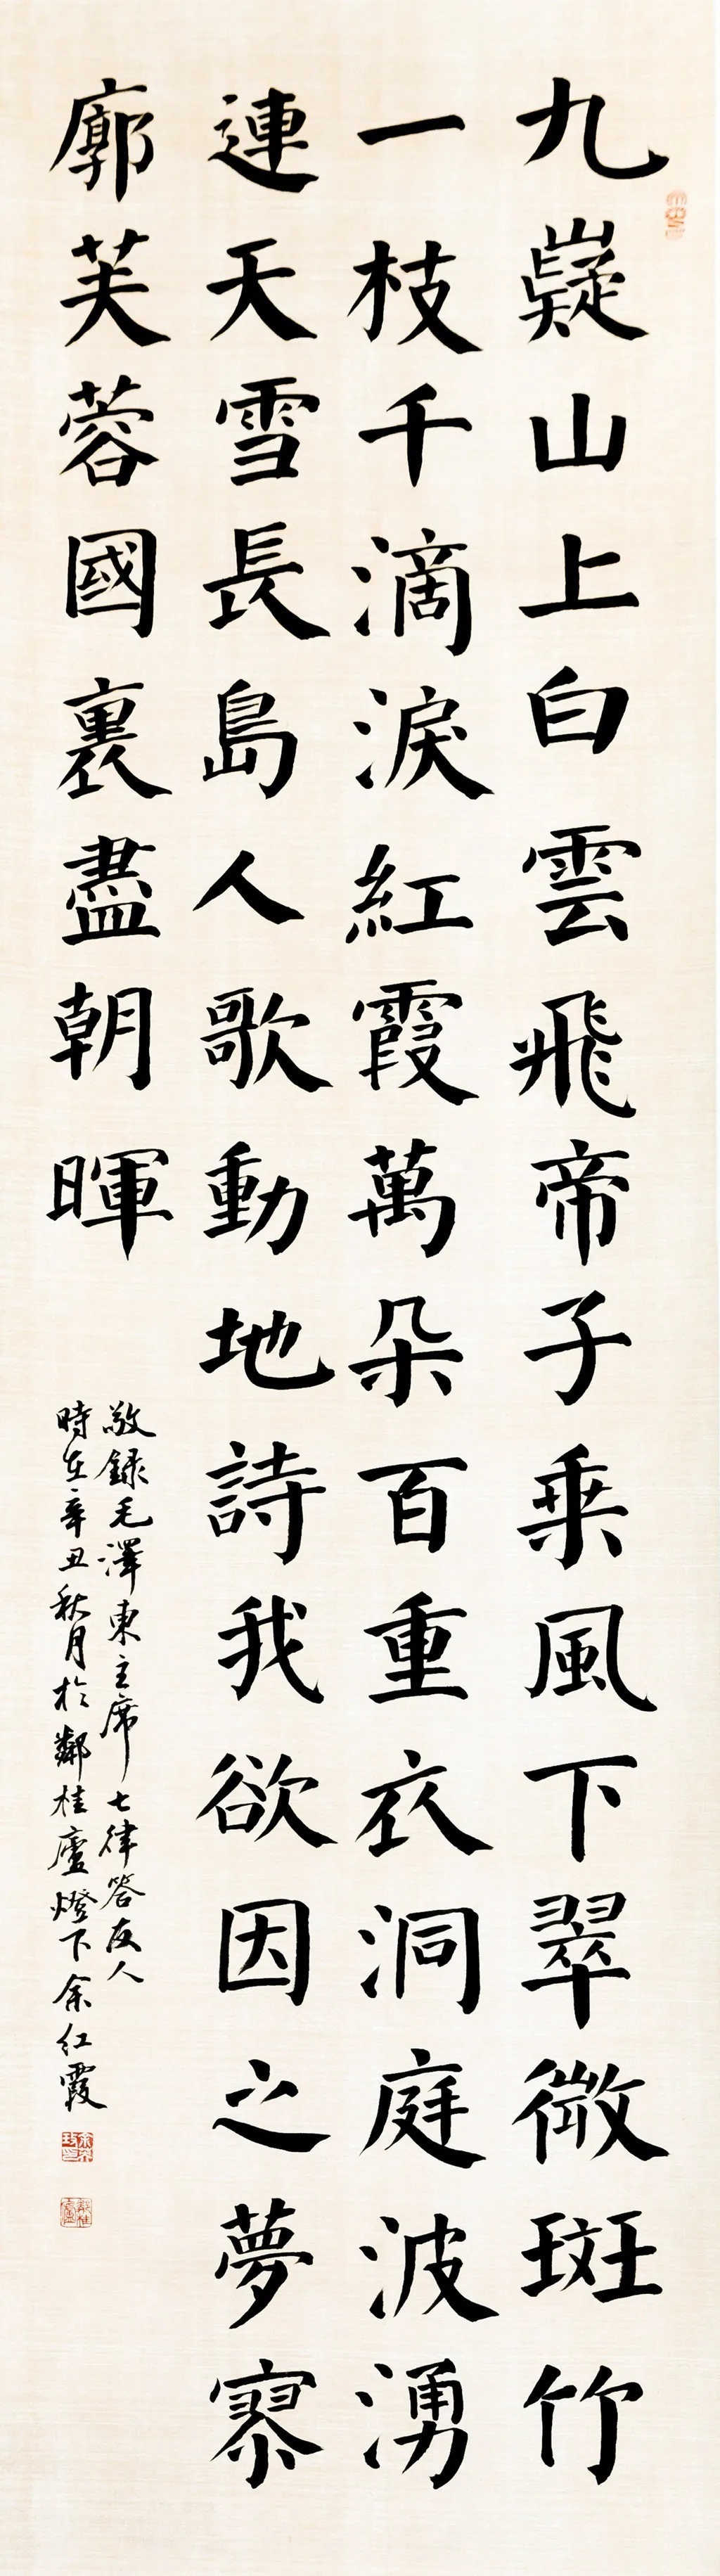 九嶷山上白雲飛帝子乘風下翠微斑竹
一枝千滴淚紅霞萬朵百重衣洞庭波湧
連天雪長島人歌動地詩我欲因之夢寥
廓芙蓉國裏盡朝暉
敬録毛澤東主席七律答友人
時在辛丑秋月於鄰桂廬燈下余紅霞